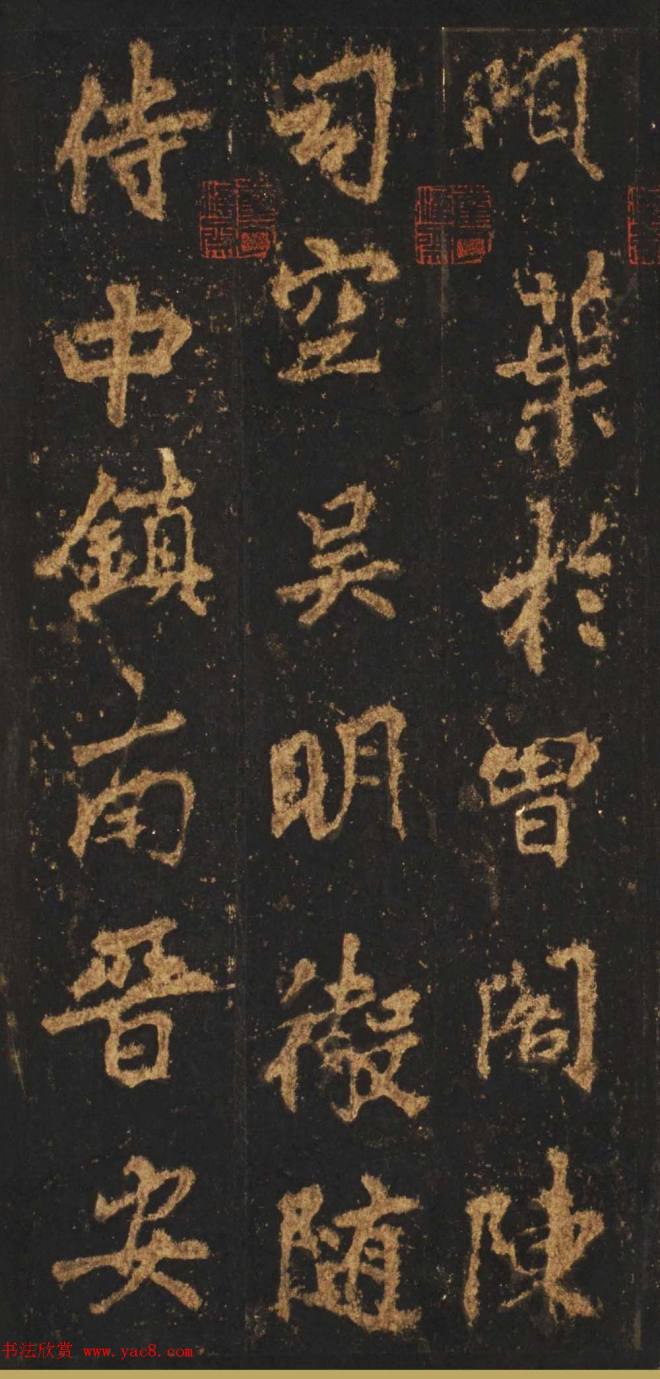 葉於曾閣陳
司空吴明徹随
侍中鎮南晉安
书法欣赏 www.yac8.com